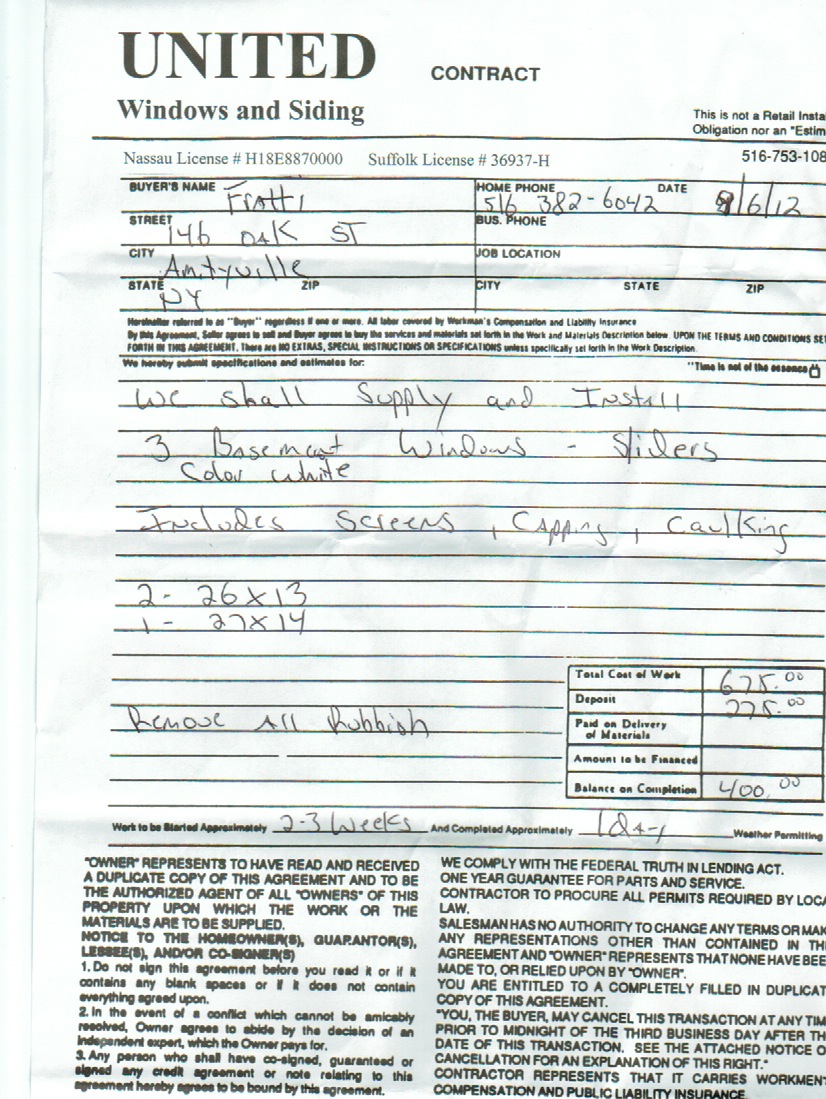 UNITED
CONTRACT
Windows and Siding
This is not a Retail Insta
Obligation nor an "Estim
Nassau License # H18E8870000 Suffolk License # 36937-H
516-753-108
BUYER'S NAME Fratti
HOME PHONE 516 382-6042 DATE 9/6/12
STREET 146 OAK ST
BUS. PHONE
CITY Amityville
JOB LOCATION
STATE NY ZIP
CITY STATE ZIP
Hereinafter referred to as "Buyer" regardless if one or more. All labor covered by Workman's Compensation and Liability Insurance
By this Agreement, Seller agrees to sell and Buyer agrees to buy the services and materials set forth in the Work and Materials Description below. UPON THE TERMS AND CONDITIONS SET
FORTH IN THIS AGREEMENT, There are NO EXTRAS, SPECIAL INSTRUCTIONS OR SPECIFICATIONS unless specifically set forth in the Work Description.
We hereby submit specifications and estimates for:
"Time is not of the essence
We shall Supply and Install
3 Basement Windows - Sliders
Color white
Includes Screens, Capping, Caulking
2- 26x13
1- 27x14
Total Cost of Work 675.00
Deposit 275.00
Remove All Rubbish
Paid on Delivery
of Materials
Amount to be Financed
Balance on Completion 400.00
Work to be Started Approximately 2-3 Weeks And Completed Approximately 1 day Weather Permitting
"OWNER" REPRESENTS TO HAVE READ AND RECEIVED
A DUPLICATE COPY OF THIS AGREEMENT AND TO BE
THE AUTHORIZED AGENT OF ALL "OWNERS" OF THIS
PROPERTY UPON WHICH THE WORK OR THE
MATERIALS ARE TO BE SUPPLIED.
NOTICE TO THE HOMEOWNER(S), GUARANTOR(S),
LESSEE(S), AND/OR CO-SIGNER(S)
1. Do not sign this agreement before you read it or if it
contains any blank spaces or if it does not contain
everything agreed upon.
2. In the event of a conflict which cannot be amicably
resolved, Owner agrees to abide by the decision of an
independent expert, which the Owner pays for.
3. Any person who shall have co-signed, guaranteed or
signed any credit agreement or note relating to this
agreement hereby agrees to be bound by this agreement.
WE COMPLY WITH THE FEDERAL TRUTH IN LENDING ACT.
ONE YEAR GUARANTEE FOR PARTS AND SERVICE.
CONTRACTOR TO PROCURE ALL PERMITS REQUIRED BY LOCA
LAW.
SALESMAN HAS NO AUTHORITY TO CHANGE ANY TERMS OR MAK
ANY REPRESENTATIONS OTHER THAN CONTAINED IN THI
AGREEMENT AND "OWNER" REPRESENTS THAT NONE HAVE BEE
MADE TO, OR RELIED UPON BY "OWNER".
YOU ARE ENTITLED TO A COMPLETELY FILLED IN DUPLICAT
COPY OF THIS AGREEMENT.
"YOU, THE BUYER, MAY CANCEL THIS TRANSACTION AT ANY TIM
PRIOR TO MIDNIGHT OF THE THIRD BUSINESS DAY AFTER TH
DATE OF THIS TRANSACTION. SEE THE ATTACHED NOTICE O
CANCELLATION FOR AN EXPLANATION OF THIS RIGHT."
CONTRACTOR REPRESENTS THAT IT CARRIES WORKMEN'
COMPENSATION AND PUBLIC LIABILITY INSURANCE.